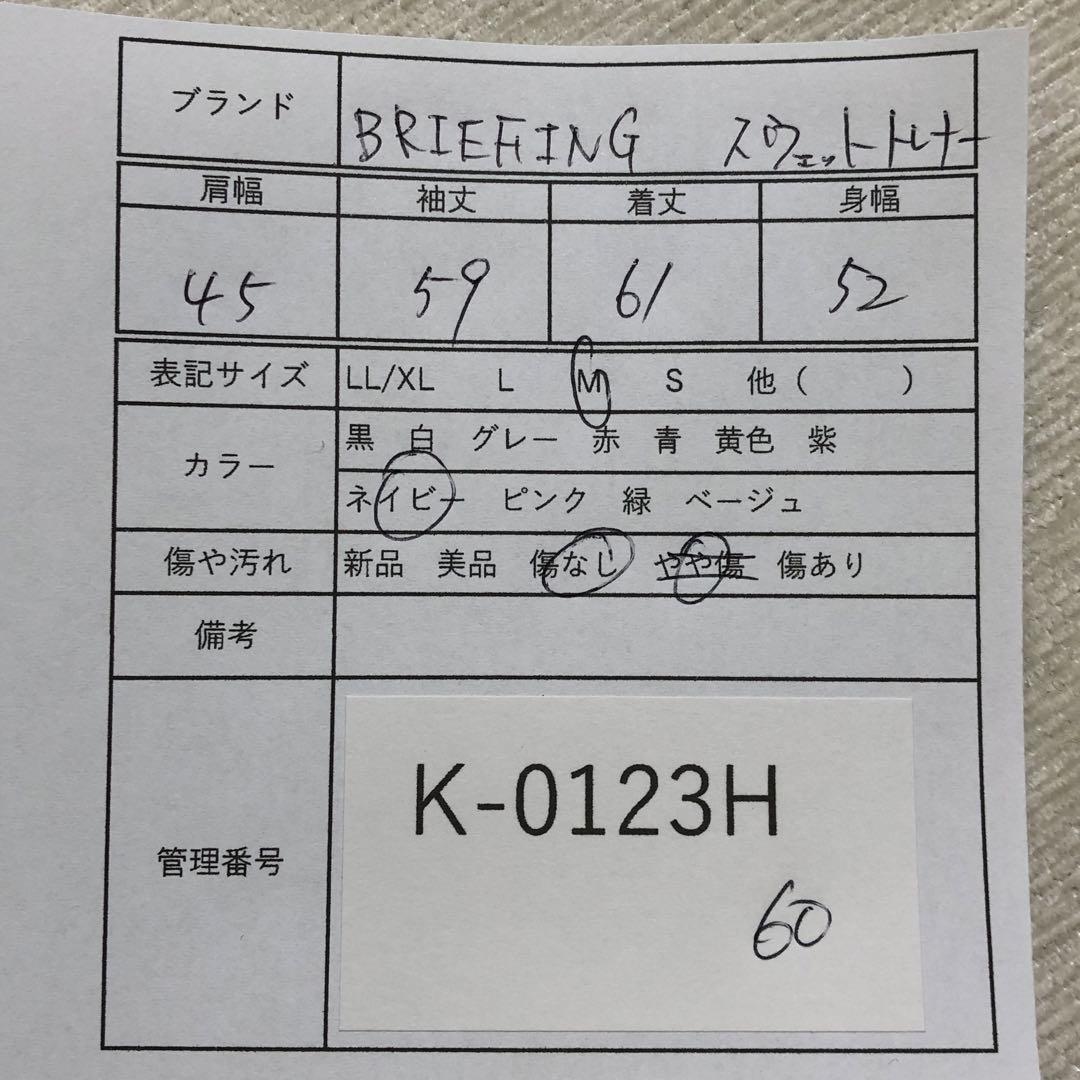 ブランド BRIEFING スウェットトレナー
肩幅 袖丈 着丈 身幅
45 59 61 52
表記サイズ LL/XL L M S 他( )
カラー 黒 白 グレー 赤 青 黄色 紫
ネイビー ピンク 緑 ベージュ
傷や汚れ 新品 美品 傷なし やや傷 傷あり
備考
管理番号 K-0123H
60